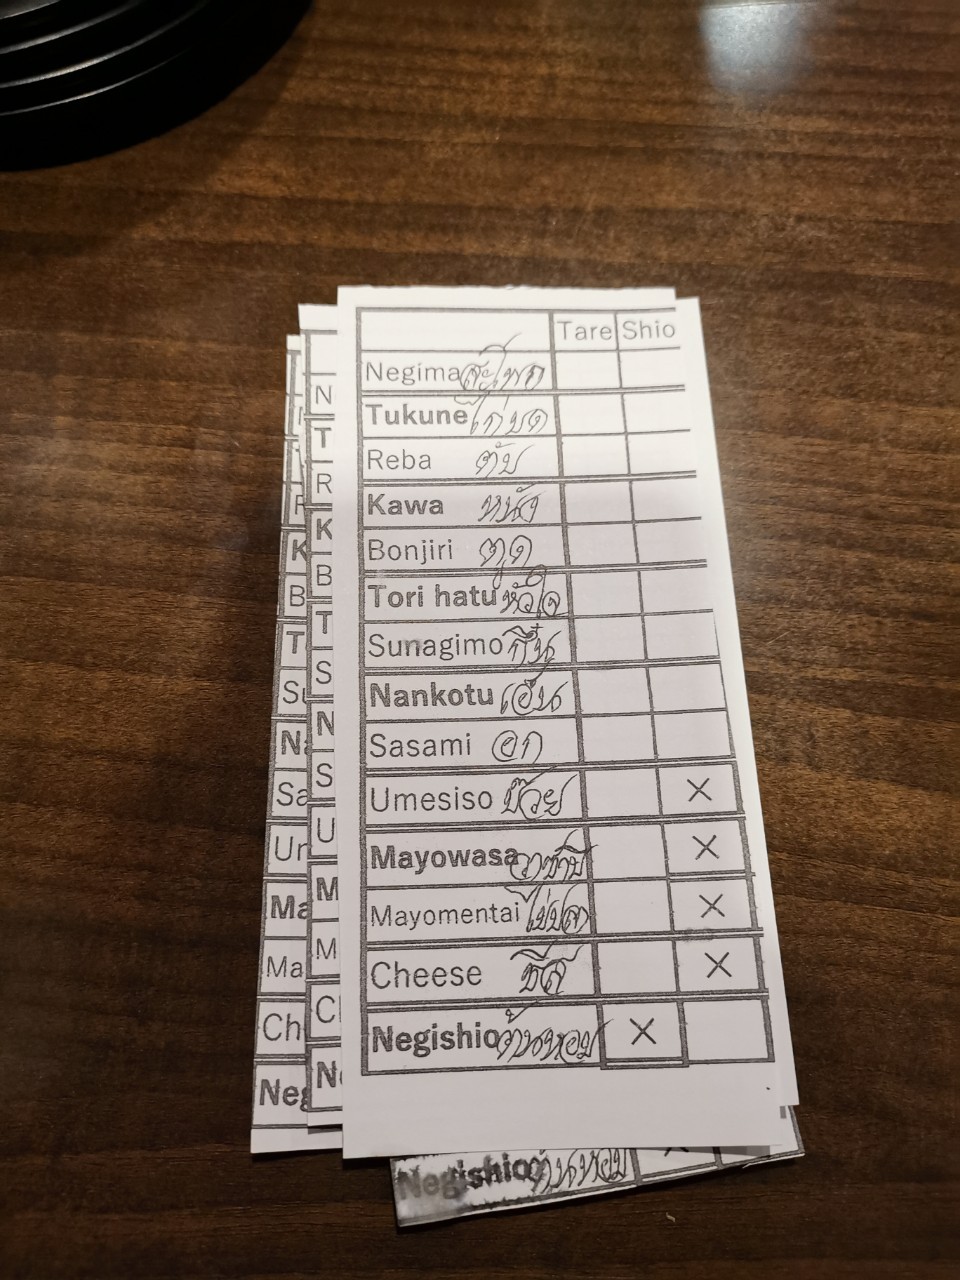 Tare Shio
Negima สะโพก
Tukune ไก่บด
Reba ตับ
Kawa หนัง
Bonjiri ตูด
Tori hatu หัวใจ
Sunagimo กึ๋น
Nankotu เอ็น
Sasami อก
Umesiso บ๊วย ×
Mayowasa วาซาบิ ×
Mayomentai ไข่ปลา ×
Cheese ชีส ×
Negishio ต้นหอม ×
Negishio ต้นหอม
N
T
R
K
B
T
S
N
S
U
M
M
Cl
Ne
K
B
T
Su
Na
Sa
Um
Ma
Ma
Ch
Neg